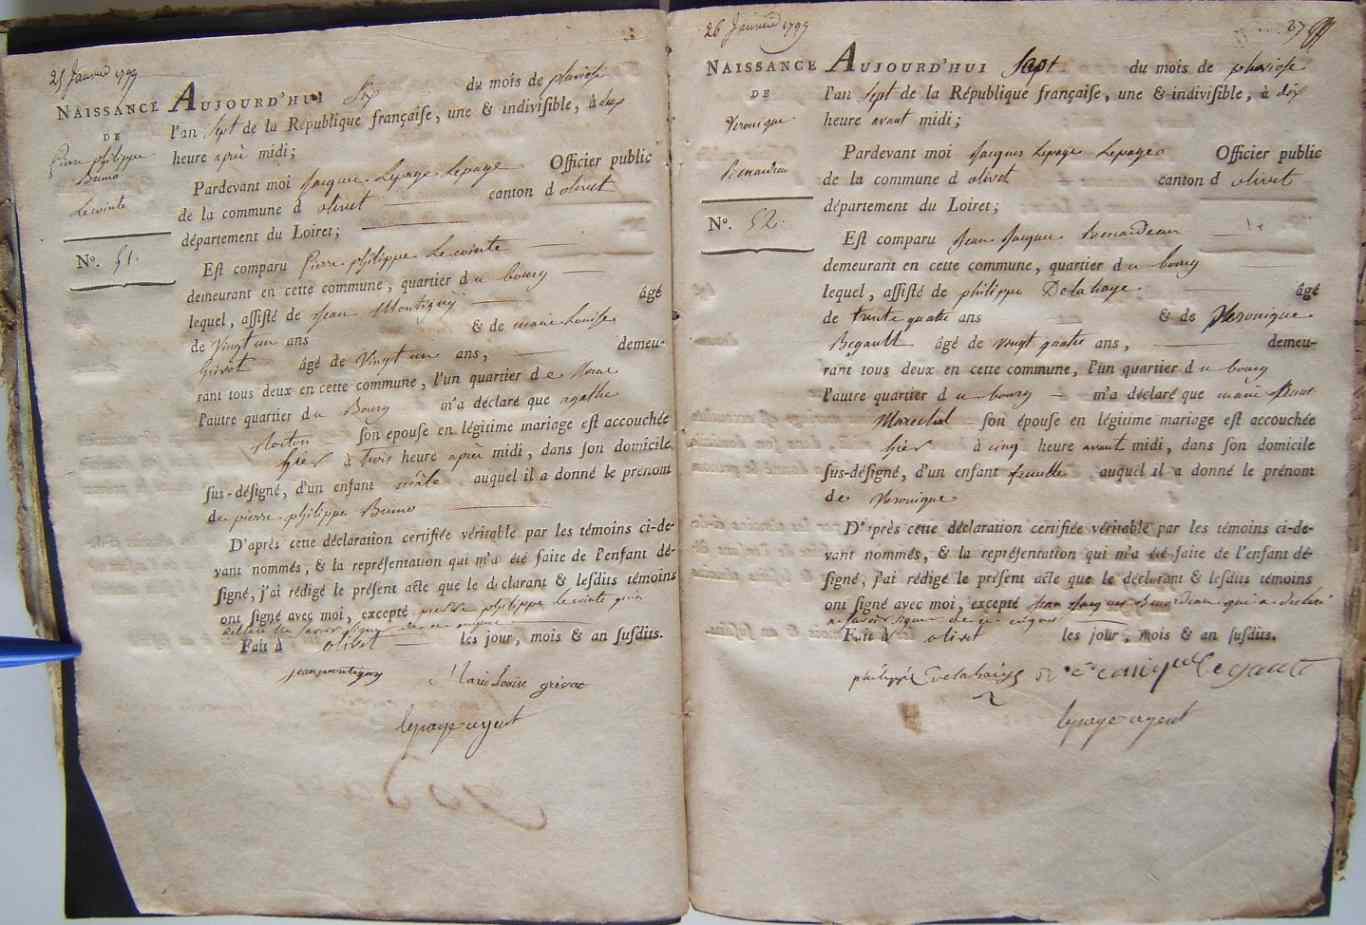 25 Janvier 1799
NAISSANCE
DE
Pierre philippe
Bruno
Lecointe
N°. 51.
AUJOURD'HUI Six du mois de pluviose
l'an sept de la République françaiſe, une & indiviſible, à deux
heure après midi;
Pardevant moi Jacques Lepage Lepage Officier public
de la commune d olivet canton d olivet
département du Loiret;
Eſt comparu Pierre philippe Lecointe
demeurant en cette commune, quartier du bourg
lequel, aſſiſté de Jean Montigny âgé
de Vingt un ans & de marie Louise
âgé de Vingt un ans, demeu-
rant tous deux en cette commune, l'un quartier de
l'autre quartier du Bourg m'a déclaré que agathe
ſon épouſe en légitime mariage eſt accouchée
hier à trois heure après midi, dans ſon domicile
ſus-déſigné, d'un enfant mâle auquel il a donné le prénom
de pierre philippe Bruno
D'après cette déclaration certifiée véritable par les témoins ci-de-
vant nommés, & la repréſentation qui m'a été faite de l'enfant dé-
ſigné, j'ai rédigé le préſent acte que le déclarant & leſdits témoins
ont ſigné avec moi, excepté pierre philippe lecointe qui a
déclaré ne savoir signer de ce enquis
Fait à olivet les jour, mois & an ſuſdits.
jean montigny Marie Louise
lepage agent
26 Janvier 1799
27
NAISSANCE
DE
Veronique
Benardeau
N°. 52.
AUJOURD'HUI Sept du mois de pluviose
l'an sept de la République françaiſe, une & indiviſible, à dix
heure avant midi;
Pardevant moi Jacques Lepage Lepage Officier public
de la commune d olivet canton d olivet
département du Loiret;
Eſt comparu Jean Jacques Benardeau
demeurant en cette commune, quartier du bourg
lequel, aſſiſté de philippe Delahaye âgé
de trente quatre ans & de Veronique
Begault âgé de vingt quatre ans, demeu-
rant tous deux en cette commune, l'un quartier du bourg
l'autre quartier du bourg m'a déclaré que marie
Marechal ſon épouſe en légitime mariage eſt accouchée
hier à cinq heure avant midi, dans ſon domicile
ſus-déſigné, d'un enfant femelle, auquel il a donné le prénom
de Veronique
D'après cette déclaration certifiée véritable par les témoins ci-de-
vant nommés, & la repréſentation qui m'a été faite de l'enfant dé-
ſigné, j'ai rédigé le préſent acte que le déclarant & leſdits témoins
ont ſigné avec moi, excepté Jean Jacques Benardeau qui a déclaré
ne savoir signer de ce enquis
Fait à olivet les jour, mois & an ſuſdits.
philippe delahaye veronique begault
lepage agent